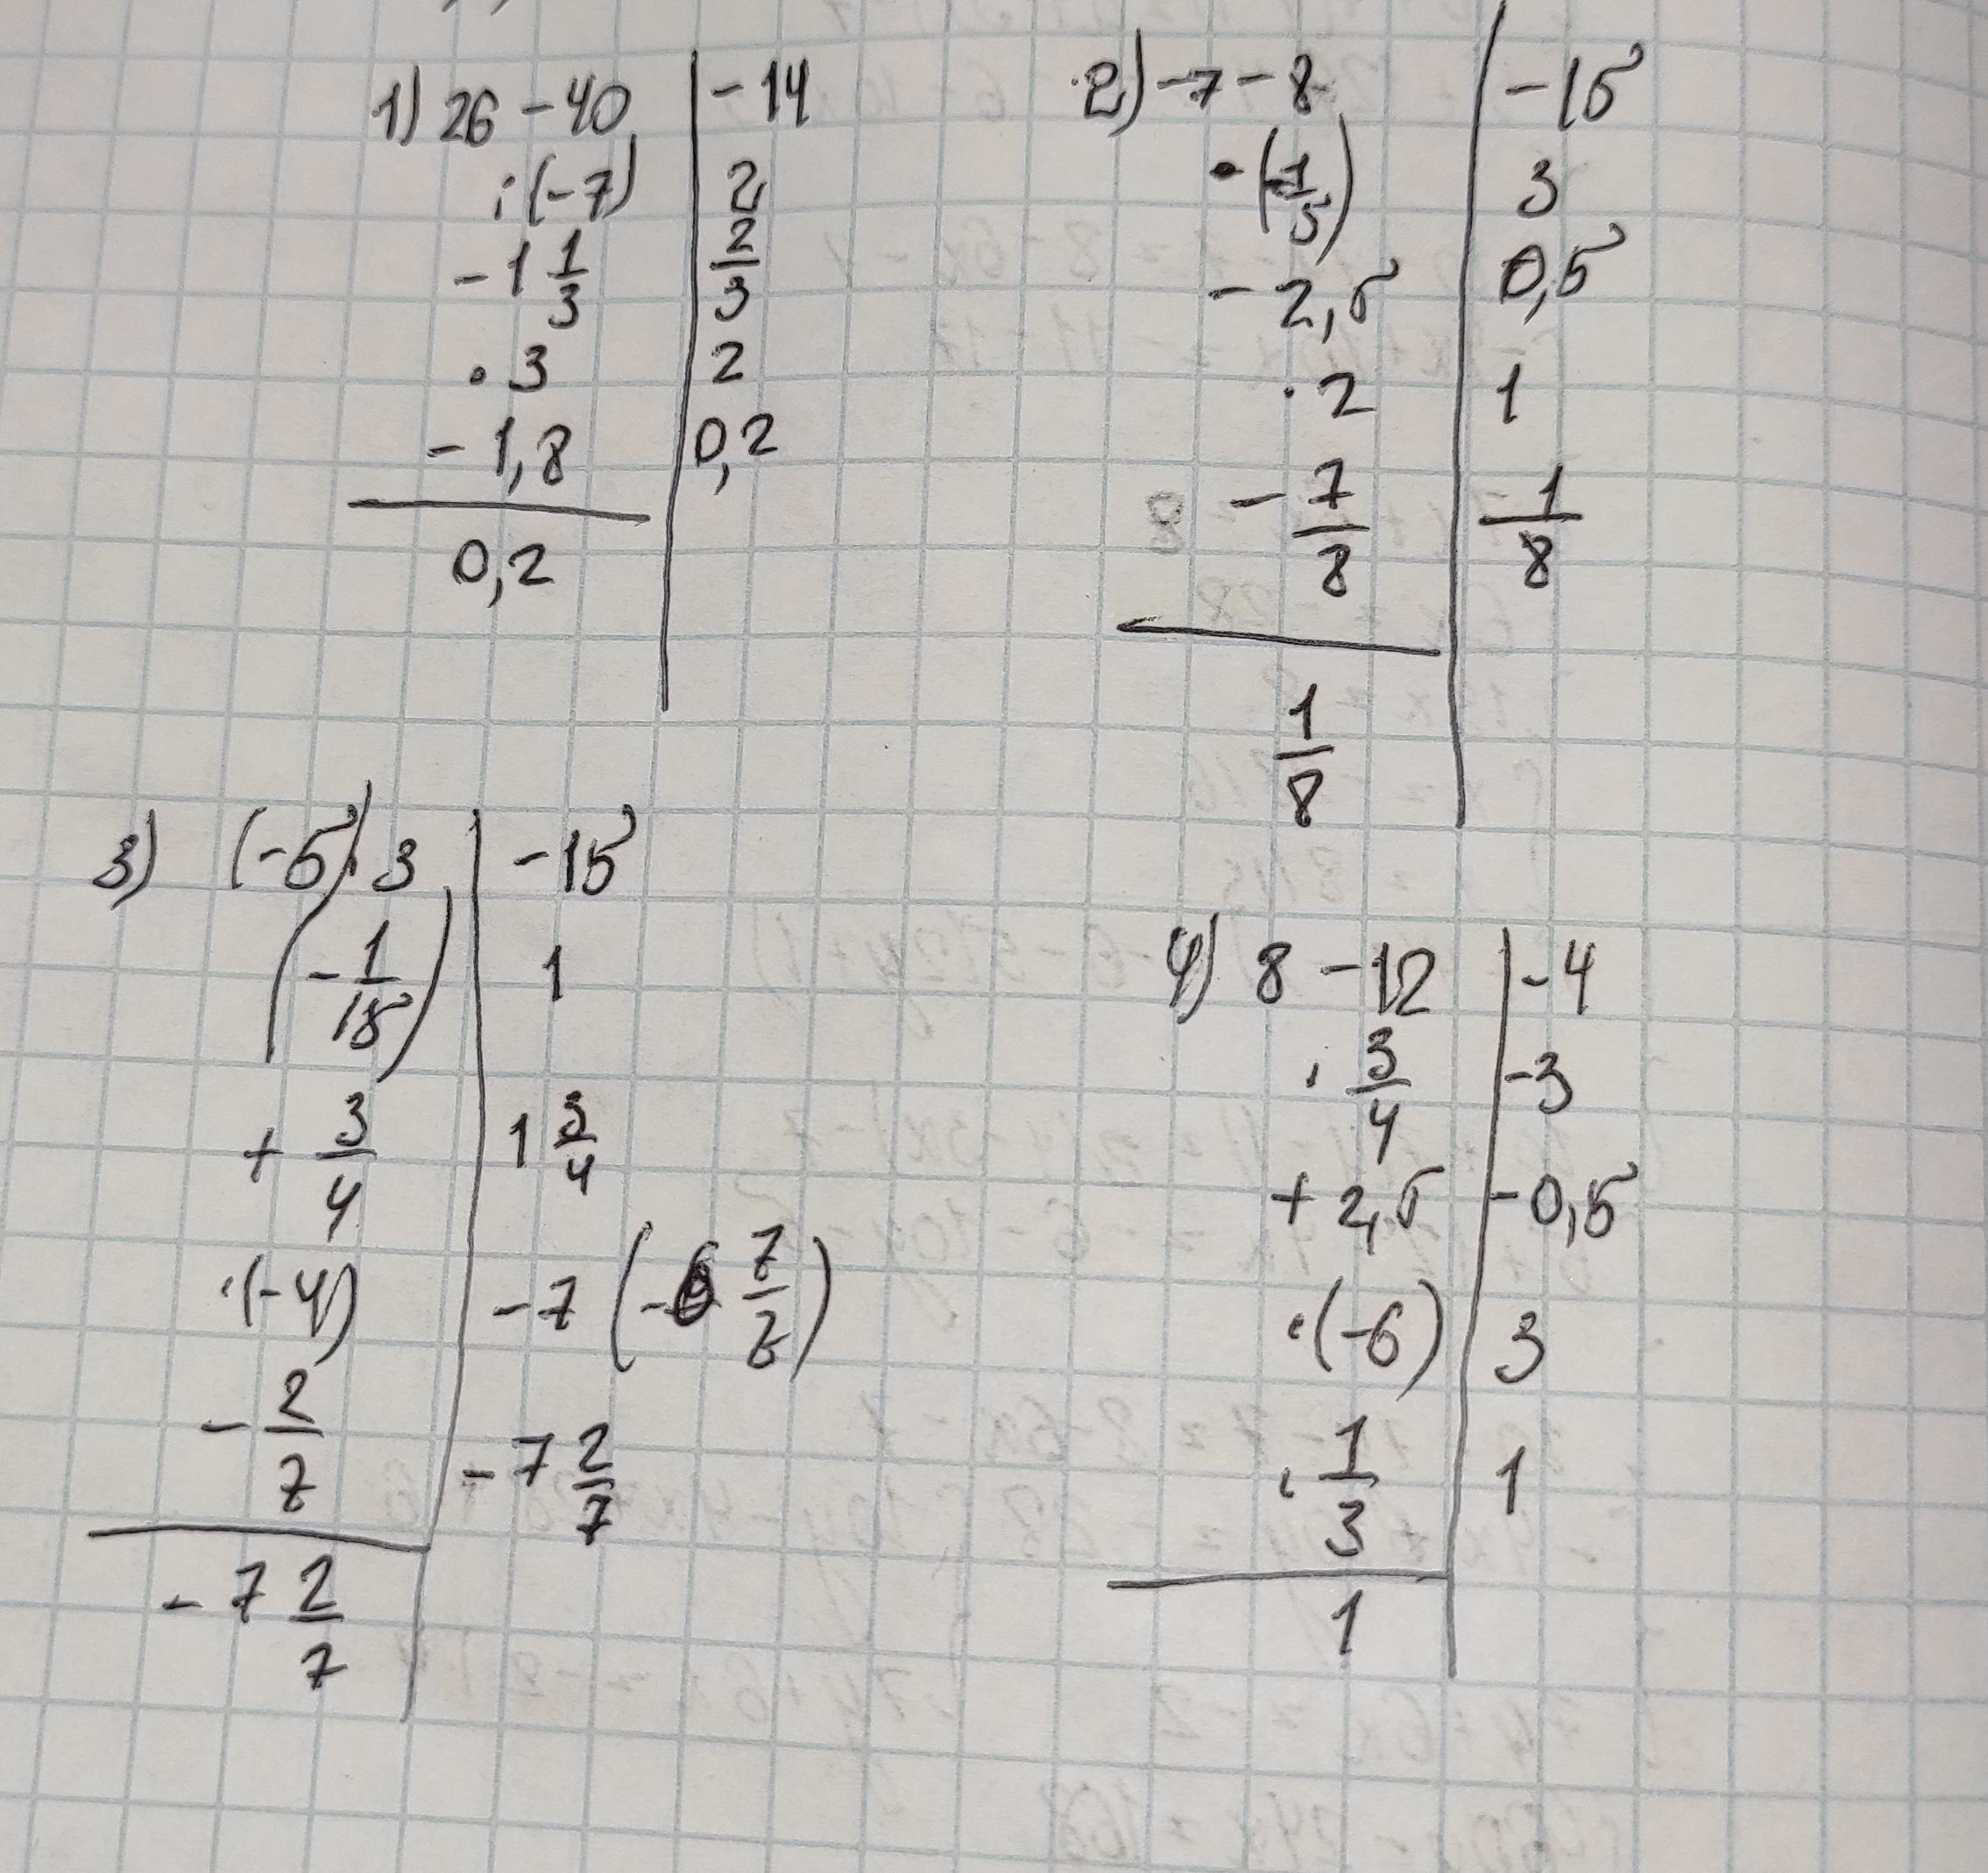 1) 26 - 40 | -14
:(-7) | 2
- 1 1/3 | 2/3
· 3 | 2
- 1,8 | 0,2
0,2
2) -7 - 8 | -15
· (-1/5) | 3
- 2,5 | 0,5
· 2 | 1
- 7/8 | 1/8
1/8
3) (-5)·3 | -15
(-1/15) | 1
+ 3/4 | 1 3/4
·(-4) | -7 (-6 7/7)
- 2/7 | -7 2/7
-7 2/7
4) 8 - 12 | -4
· 3/4 | -3
+ 2,5 | -0,5
·(-6) | 3
· 1/3 | 1
1